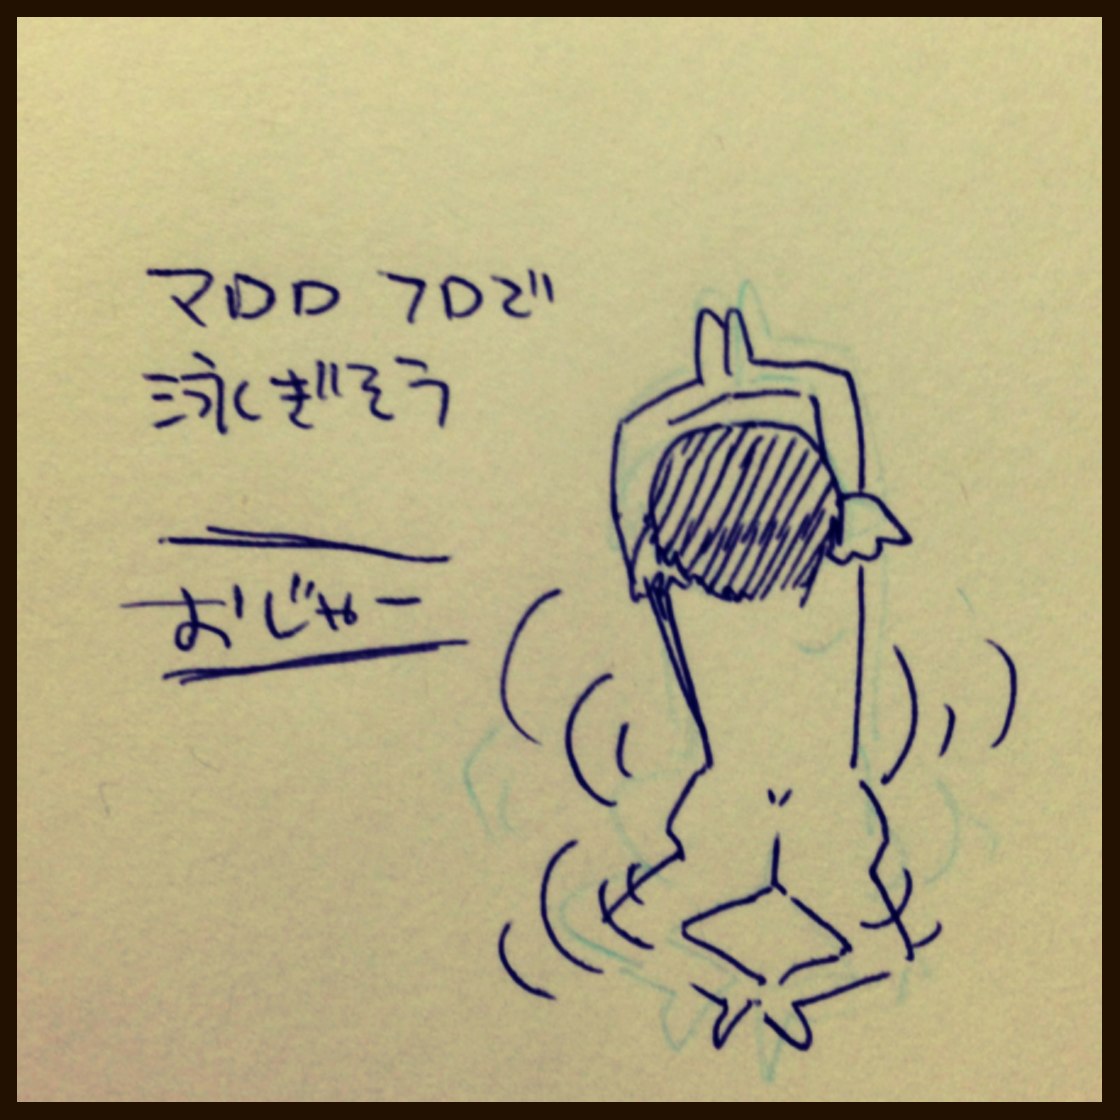 マロロ フロで
泳ぎそう
おじゃー